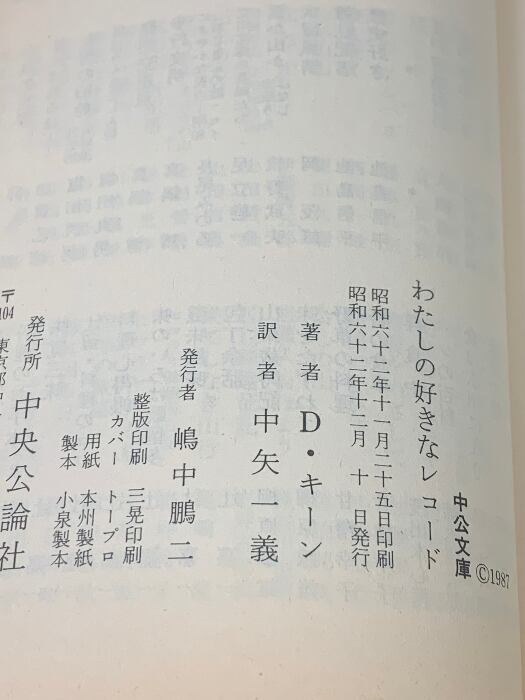 中公文庫 ©1987
わたしの好きなレコード
昭和六十二年十一月二十五日印刷
昭和六十二年十二月 十 日発行
著者 D・キーン
訳者 中矢一義
発行者 嶋中鵬二
整版印刷 三晃印刷
カバー トープロ
用紙 本州製紙
製本 小泉製本
発行所 中央公論社
〒104 東京都中